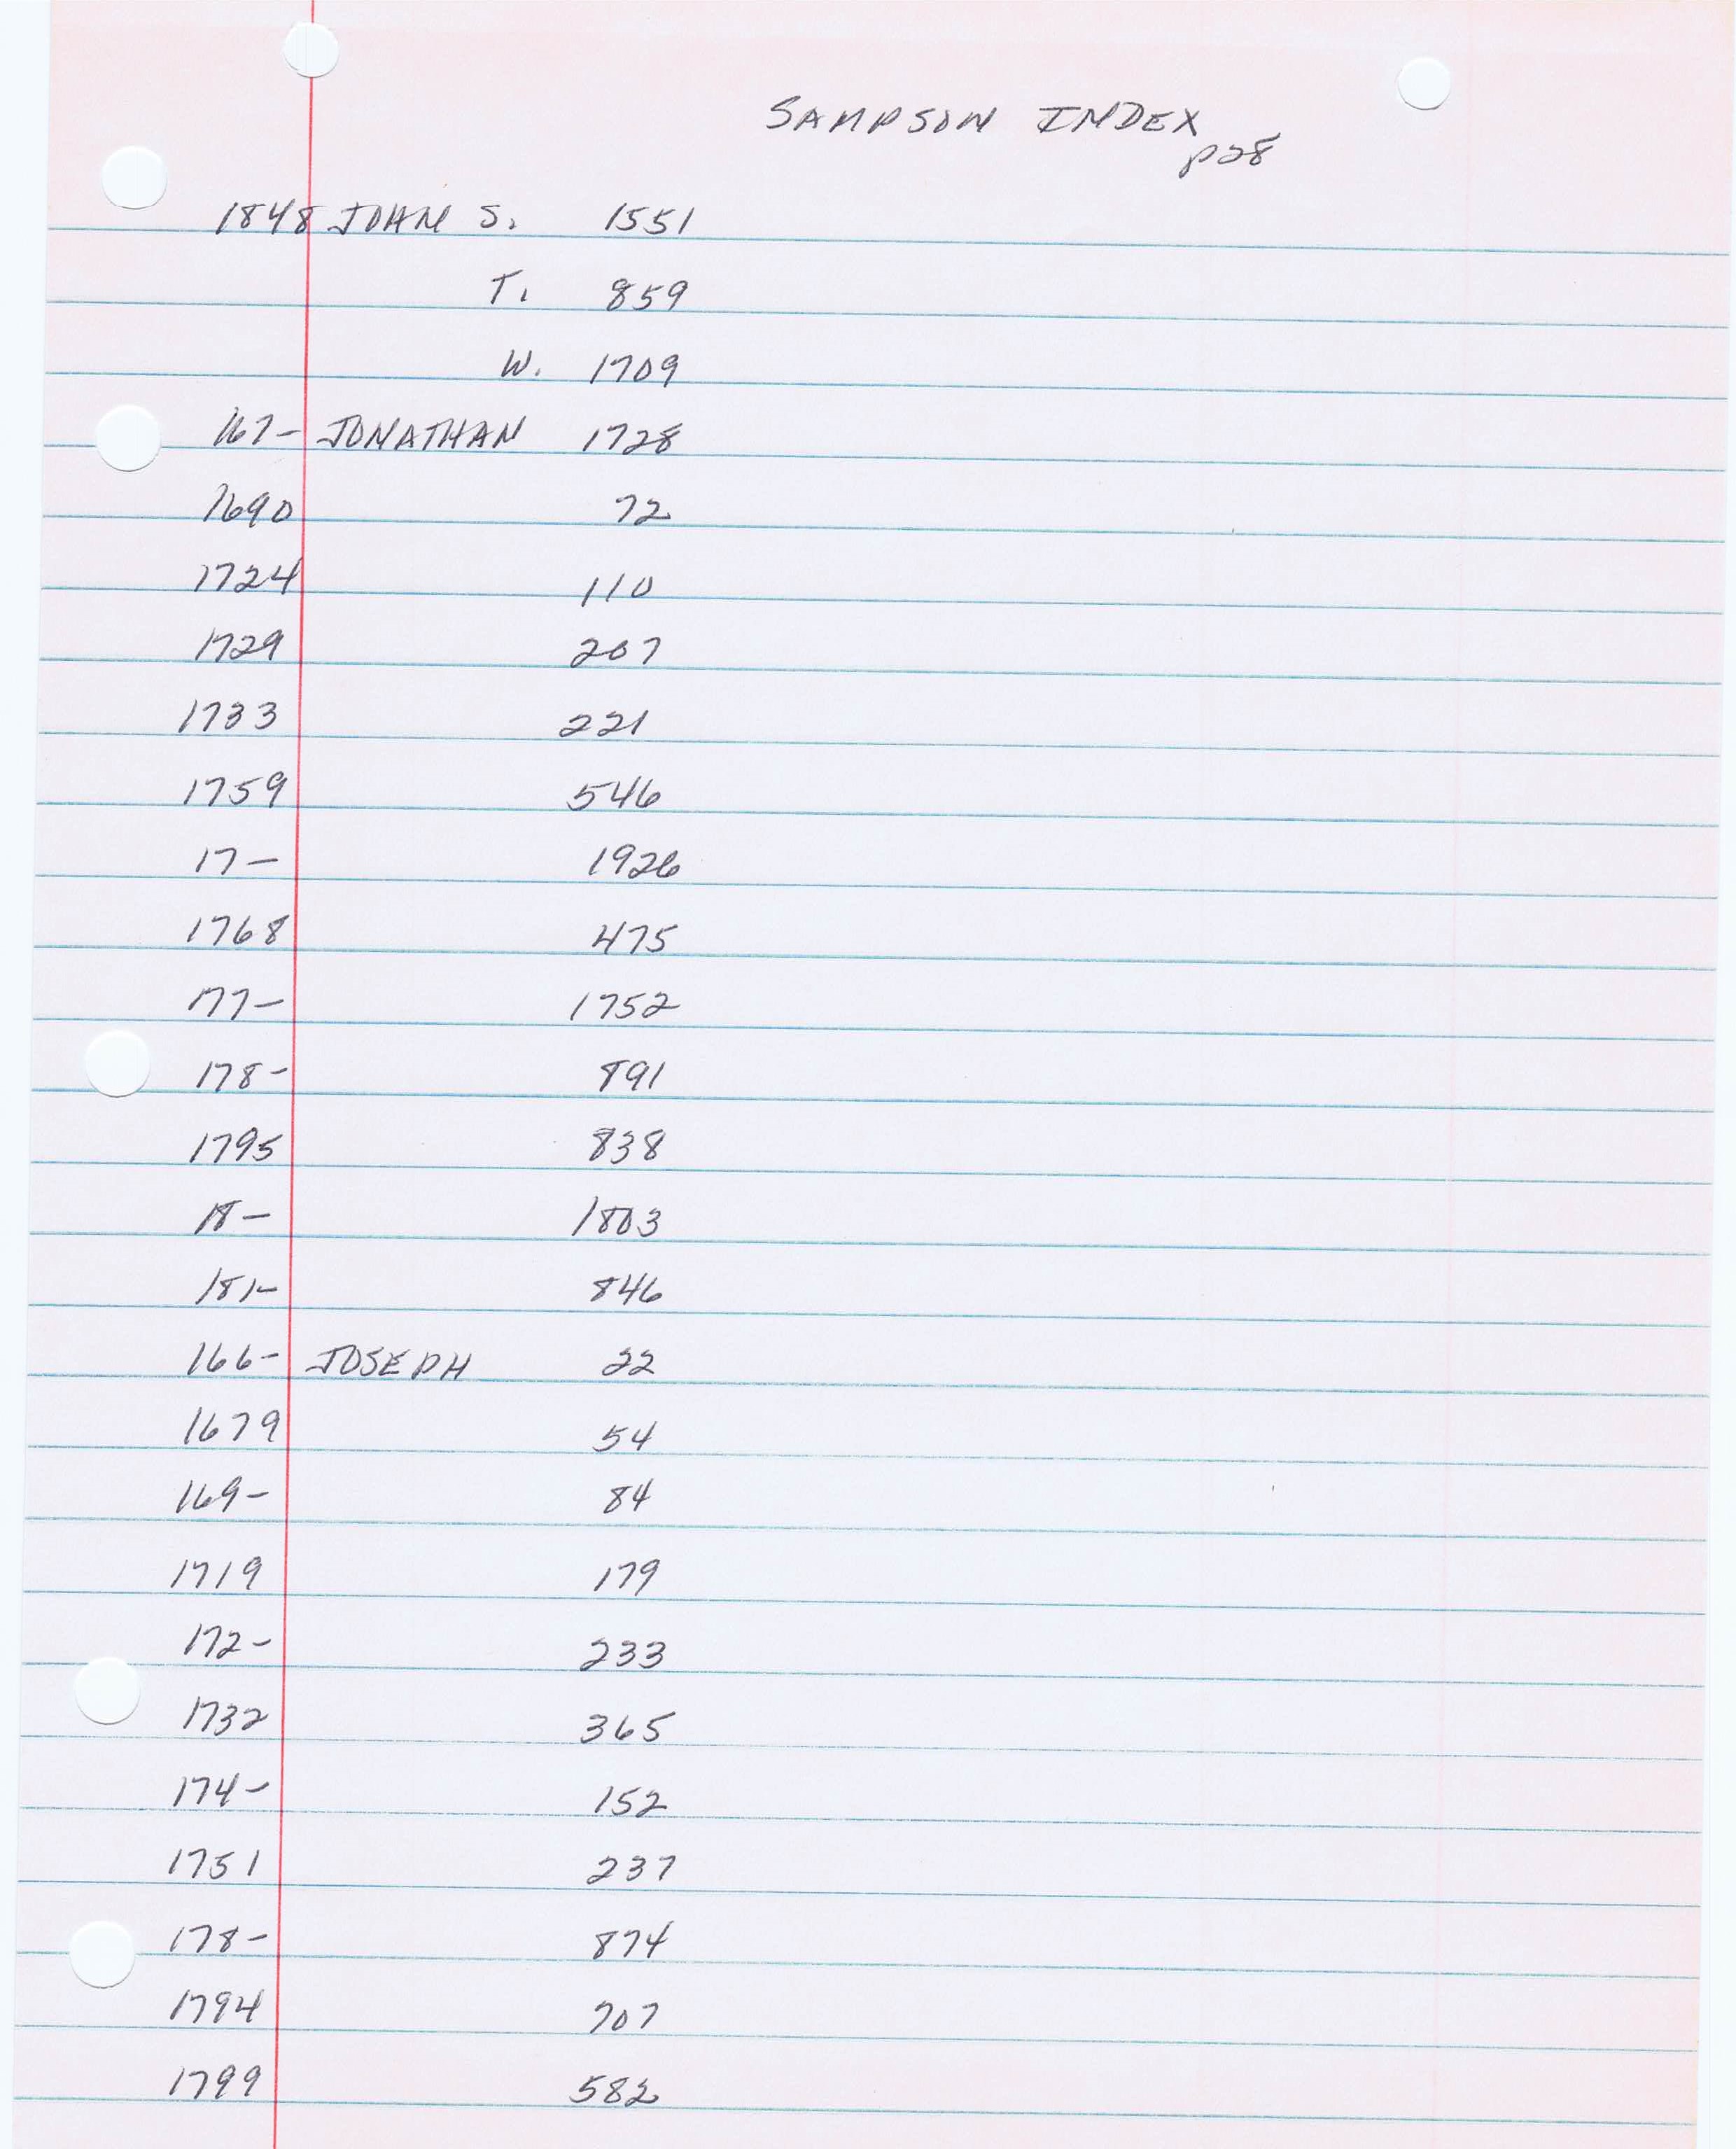 SAMPSON INDEX
p28
1848 JOHN S. 1551
T. 859
W. 1709
167- JONATHAN 1728
1690 72
1724 110
1729 207
1733 221
1759 546
17- 1926
1768 475
177- 1752
178- 891
1795 838
18- 1803
181- 846
166- JOSEPH 22
1679 54
169- 84
1719 179
172- 233
1732 365
174- 152
1751 237
178- 874
1794 707
1799 582